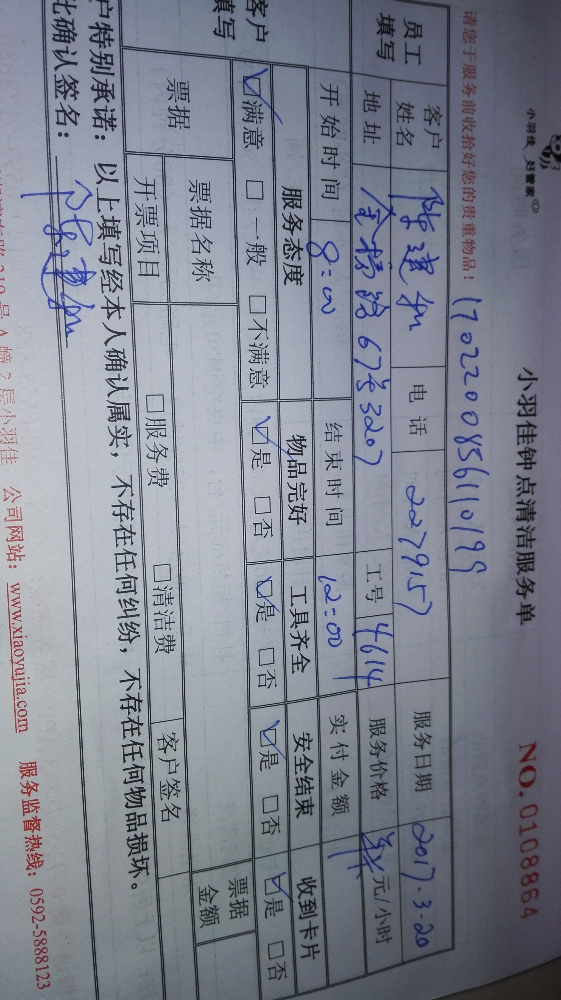 小羽佳 好管家
小羽佳钟点清洁服务单
NO. 0108864
请您于服务前收拾好您的贵重物品！
1702200856110199
员工填写
客户姓名 陈建 电话 2279157 服务日期 2017.3.20
地址 金榜路67号3207 工号 4614 服务价格 元/小时
开始时间 8:00 结束时间 12:00 实付金额
客户填写
服务态度 物品完好 工具齐全 安全结束 收到卡片
☑满意 □一般 □不满意 ☑是 □否 ☑是 □否 ☑是 □否 ☑是 □否
票据 票据名称 票据金额
开票项目 □服务费 □清洁费 客户签名
户特别承诺：以上填写经本人确认属实，不存在任何纠纷，不存在任何物品损坏。
此确认签名：陈建
路319号A幢2层小羽佳 公司网站：www.xiaoyujia.com 服务监督热线：0592-5888123